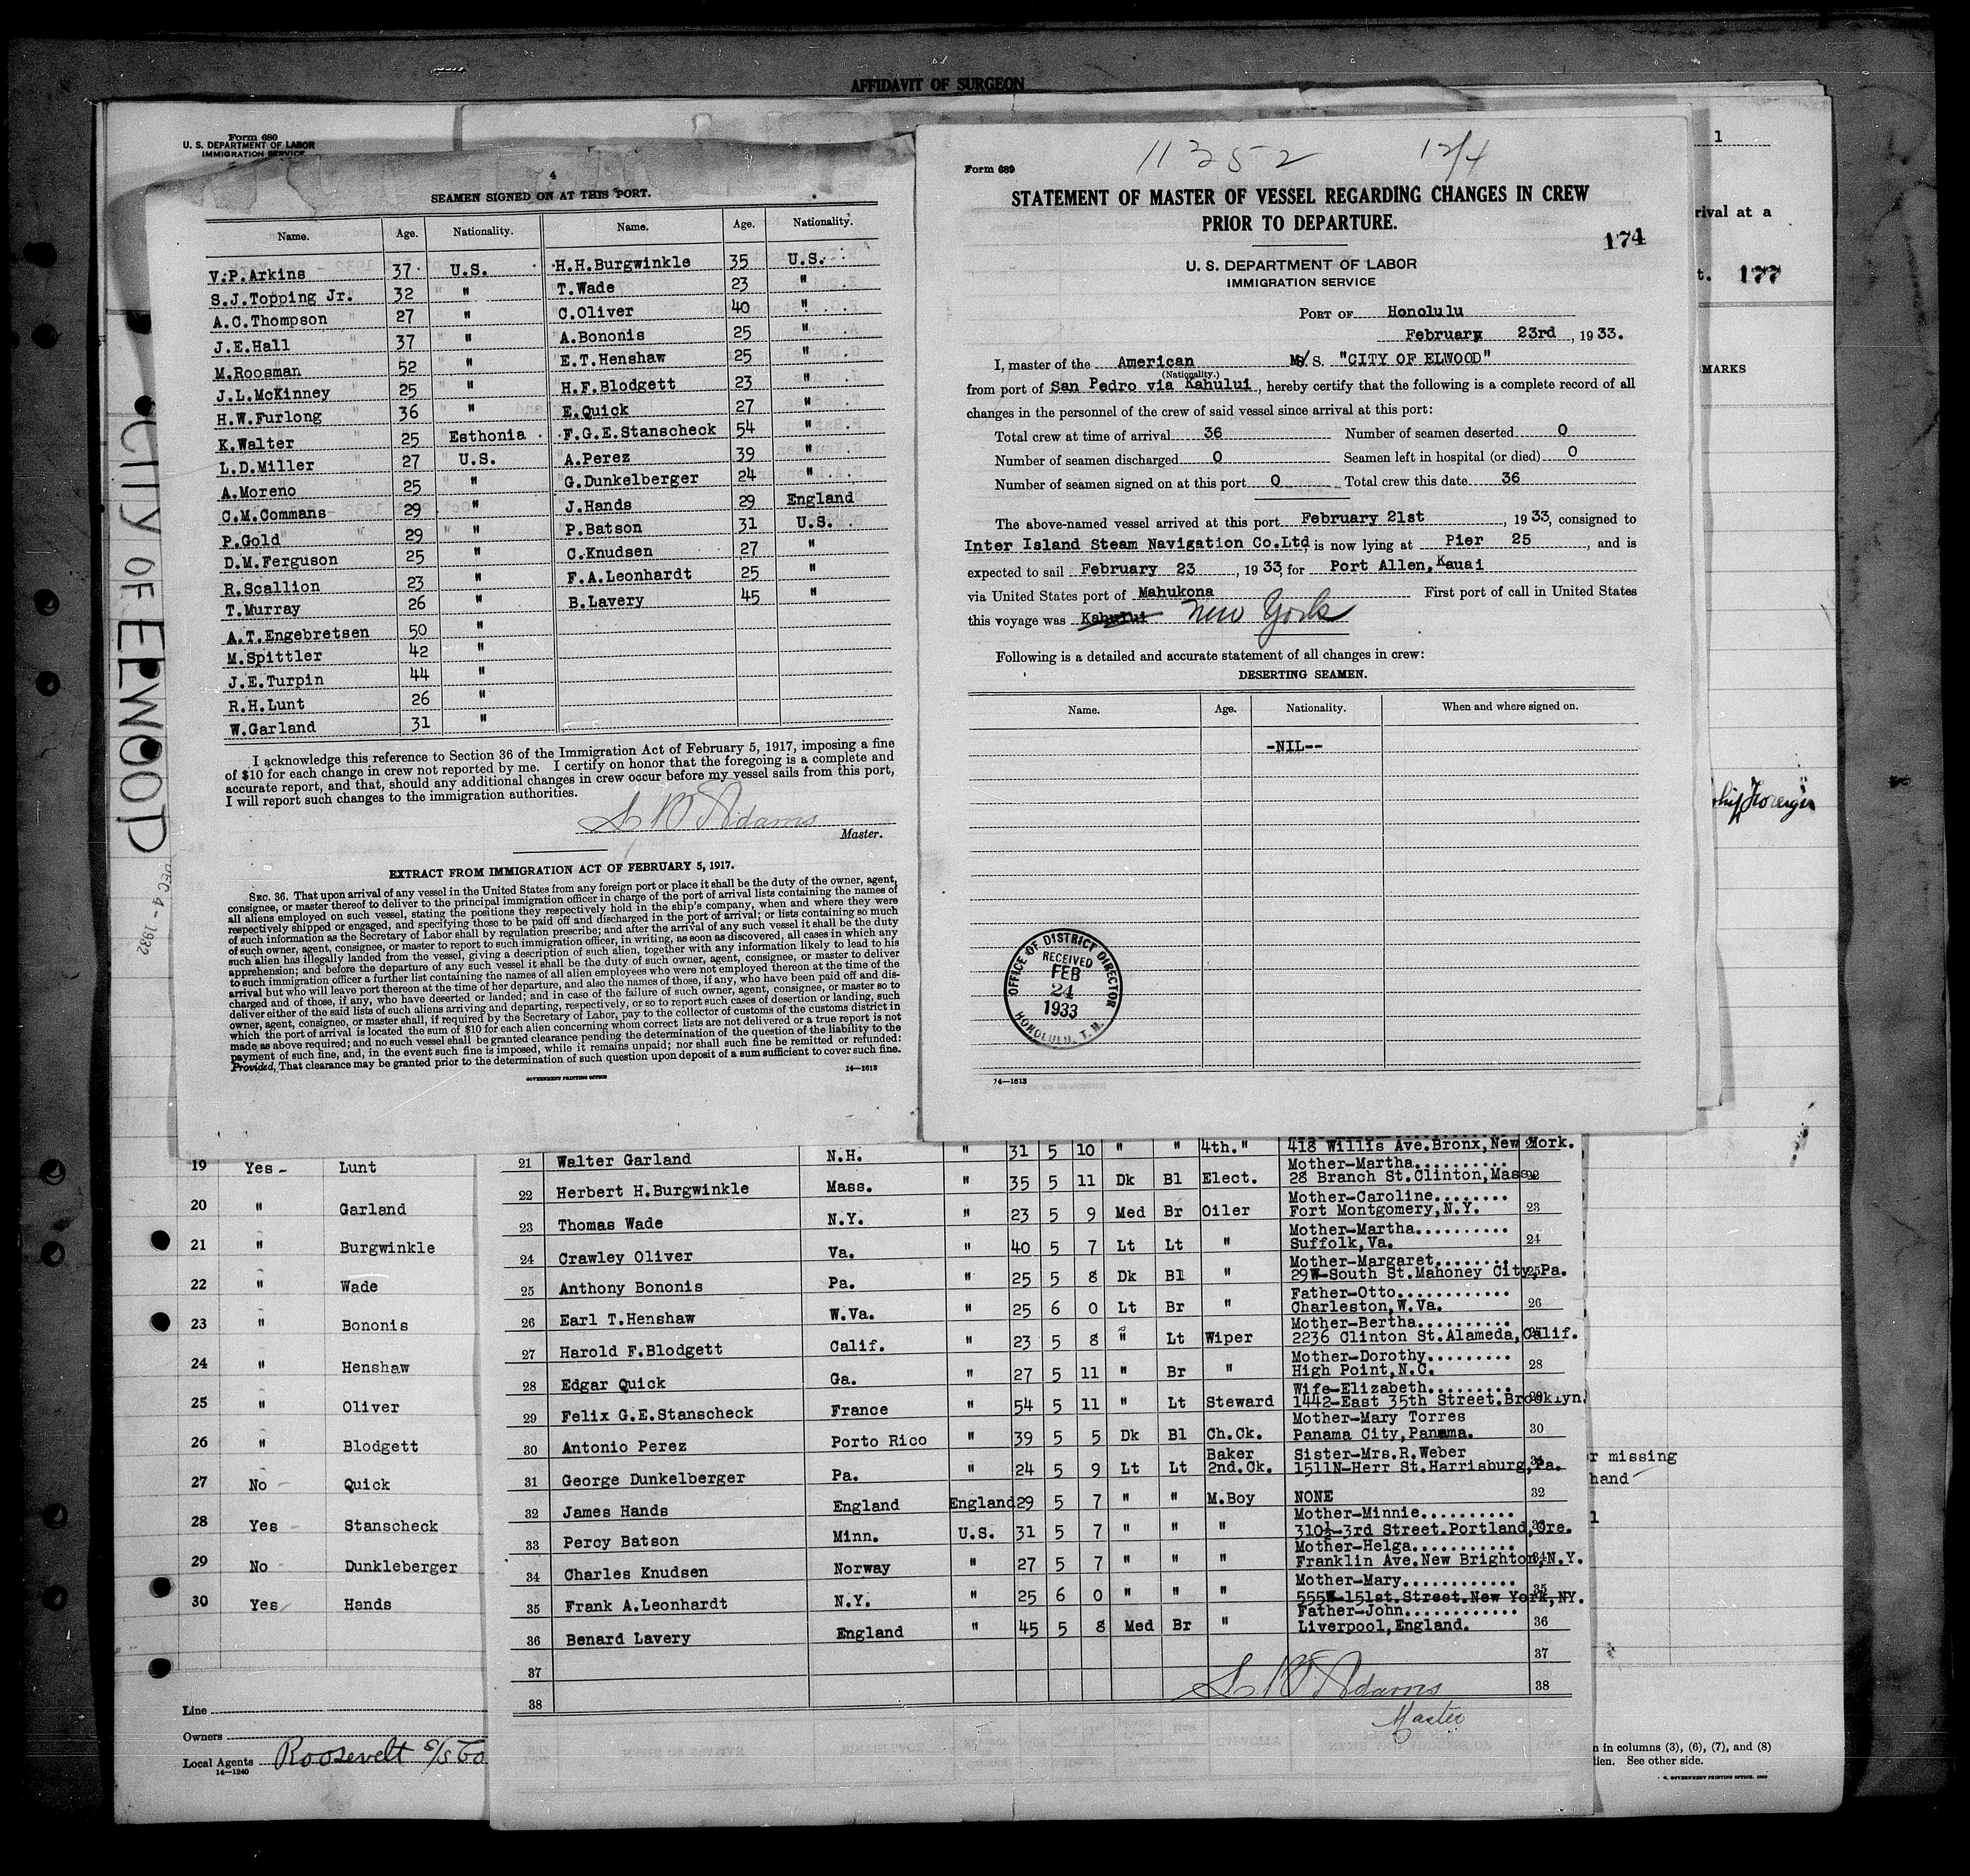 AFFIDAVIT OF SURGEON
Form 680
U. S. DEPARTMENT OF LABOR
IMMIGRATION SERVICE
4
SEAMEN SIGNED ON AT THIS PORT.
Name. Age. Nationality. Name. Age. Nationality.
V.P.Arkins 37 U.S. H.H.Burgwinkle 35 U.S.
S.J.Topping Jr. 32 " T.Wade 23 "
A.C.Thompson 27 " C.Oliver 40 "
J.E.Hall 37 " A.Bononis 25 "
M.Roosman 52 " E.T.Henshaw 25 "
J.L.McKinney 25 " H.F.Blodgett 23 "
H.W.Furlong 36 " E.Quick 27 "
K.Walter 25 Esthonia F.G.E.Stanscheck 54 "
L.D.Miller 27 U.S. A.Perez 39 "
A.Moreno 25 " G.Dunkelberger 24 "
C.M.Commans 29 " J.Hands 29 England
P.Gold 29 " P.Batson 31 U.S.
D.M.Ferguson 25 " C.Knudsen 27 "
R.Scallion 23 " F.A.Leonhardt 25 "
T.Murray 26 " B.Lavery 45 "
A.T.Engebretsen 50 "
M.Spittler 42 "
J.E.Turpin 44 "
R.H.Lunt 26 "
W.Garland 31 "
I acknowledge this reference to Section 36 of the Immigration Act of February 5, 1917, imposing a fine
of $10 for each change in crew not reported by me. I certify on honor that the foregoing is a complete and
accurate report, and that, should any additional changes in crew occur before my vessel sails from this port,
I will report such changes to the immigration authorities.
Adams
Master.
EXTRACT FROM IMMIGRATION ACT OF FEBRUARY 5, 1917.
SEC. 36. That upon arrival of any vessel in the United States from any foreign port or place it shall be the duty of the owner, agent,
consignee, or master thereof to deliver to the principal immigration officer in charge of the port of arrival lists containing the names of
all aliens employed on such vessel, stating the positions they respectively hold in the ship's company, when and where they were
respectively shipped or engaged, and specifying those to be paid off and discharged in the port of arrival; or lists containing so much
of such information as the Secretary of Labor shall by regulation prescribe; and after the arrival of any such vessel it shall be the duty
of such owner, agent, consignee, or master to report to such immigration officer, in writing, as soon as discovered, all cases in which any
such alien has illegally landed from the vessel, giving a description of such alien, together with any information likely to lead to his
apprehension; and before the departure of any such vessel it shall be the duty of such owner, agent, consignee, or master to deliver
to such immigration officer a further list containing the names of all alien employees who were not employed thereon at the time of the
arrival but who will leave port thereon at the time of her departure, and also the names of those, if any, who have been paid off and dis-
charged and of those, if any, who have deserted or landed; and in case of the failure of such owner, agent, consignee, or master so to
deliver either of the said lists of such aliens arriving and departing, respectively, or so to report such cases of desertion or landing, such
owner, agent, consignee, or master shall, if required by the Secretary of Labor, pay to the collector of customs of the customs district in
which the port of arrival is located the sum of $10 for each alien concerning whom correct lists are not delivered or a true report is not
made as above required; and no such vessel shall be granted clearance pending the determination of the question of the liability to the
payment of such fine, and, in the event such fine is imposed, while it remains unpaid; nor shall such fine be remitted or refunded:
Provided, That clearance may be granted prior to the determination of such question upon deposit of a sum sufficient to cover such fine.
GOVERNMENT PRINTING OFFICE
14—1613
CITY OF ELWOOD
DEC 4 - 1932
11352 12/4
Form 689
STATEMENT OF MASTER OF VESSEL REGARDING CHANGES IN CREW
PRIOR TO DEPARTURE.
174
U. S. DEPARTMENT OF LABOR
IMMIGRATION SERVICE
PORT OF Honolulu
February 23rd, 1933.
I, master of the American M/S. "CITY OF ELWOOD"
(Nationality.)
from port of San Pedro via Kahului, hereby certify that the following is a complete record of all
changes in the personnel of the crew of said vessel since arrival at this port:
Total crew at time of arrival 36 Number of seamen deserted 0
Number of seamen discharged 0 Seamen left in hospital (or died) 0
Number of seamen signed on at this port 0 Total crew this date 36
The above-named vessel arrived at this port February 21st, 1933, consigned to
Inter Island Steam Navigation Co.Ltd, is now lying at Pier 25, and is
expected to sail February 23, 1933, for Port Allen, Kauai
via United States port of Mahukona First port of call in United States
this voyage was Kahului New York
Following is a detailed and accurate statement of all changes in crew:
DESERTING SEAMEN.
Name. Age. Nationality. When and where signed on.
-NIL--
OFFICE OF DISTRICT DIRECTOR
RECEIVED
FEB
24
1933
HONOLULU, T. H.
14—1613
1
rival at a
t. 177
MARKS
Foreign
19 Yes- Lunt
20 " Garland
21 " Burgwinkle
22 " Wade
23 " Bononis
24 " Henshaw
25 " Oliver
26 " Blodgett
27 No- Quick
28 Yes- Stanscheck
29 No- Dunkleberger
30 Yes Hands
Line
Owners
Local Agents Roosevelt S/S Co
14—1240
21 Walter Garland N.H. " 31 5 10 " " 4th." 418 Willis Ave.Bronx,New York. 21
22 Herbert H.Burgwinkle Mass. " 35 5 11 Dk Bl Elect. Mother-Martha..........
28 Branch St.Clinton,Mass. 22
23 Thomas Wade N.Y. " 23 5 9 Med Br Oiler Mother-Caroline........
Fort Montgomery,N.Y. 23
24 Crawley Oliver Va. " 40 5 7 Lt Lt " Mother-Martha..........
Suffolk,Va. 24
25 Anthony Bononis Pa. " 25 5 8 Dk Bl " Mother-Margaret........
29W-South St.Mahoney City,Pa. 25
26 Earl T.Henshaw W.Va. " 25 6 0 Lt Br " Father-Otto............
Charleston,W.Va. 26
27 Harold F.Blodgett Calif. " 23 5 8 " Lt Wiper Mother-Bertha..........
2236 Clinton St.Alameda,Calif. 27
28 Edgar Quick Ga. " 27 5 11 " Br " Mother-Dorothy.........
High Point,N.C. 28
29 Felix G.E.Stanscheck France " 54 5 11 " Lt Steward Wife-Elizabeth.........
1442-East 35th Street.Brooklyn 29
30 Antonio Perez Porto Rico " 39 5 5 Dk Bl Ch.Ck. Mother-Mary Torres
Panama City,Panama. 30
31 George Dunkelberger Pa. " 24 5 9 Lt Lt Baker 2nd.Ck. Sister-Mrs.R.Weber
1511N-Herr St.Harrisburg,Pa. 31
32 James Hands England England 29 5 7 " " M.Boy NONE 32
33 Percy Batson Minn. U.S. 31 5 7 " " " Mother-Minnie..........
310½-3rd Street.Portland,Ore. 33
34 Charles Knudsen Norway " 27 5 7 " " " Mother-Helga...........
Franklin Ave.New Brighton,N.Y. 34
35 Frank A.Leonhardt N.Y. " 25 6 0 " " " Mother-Mary............
555W-151st.Street.New York,NY. 35
36 Benard Lavery England " 45 5 8 Med Br " Father-John............
Liverpool,England. 36
37 37
38 38
Adams
Master
r missing
hand
n in columns (3), (6), (7), and (8)
lien. See other side.